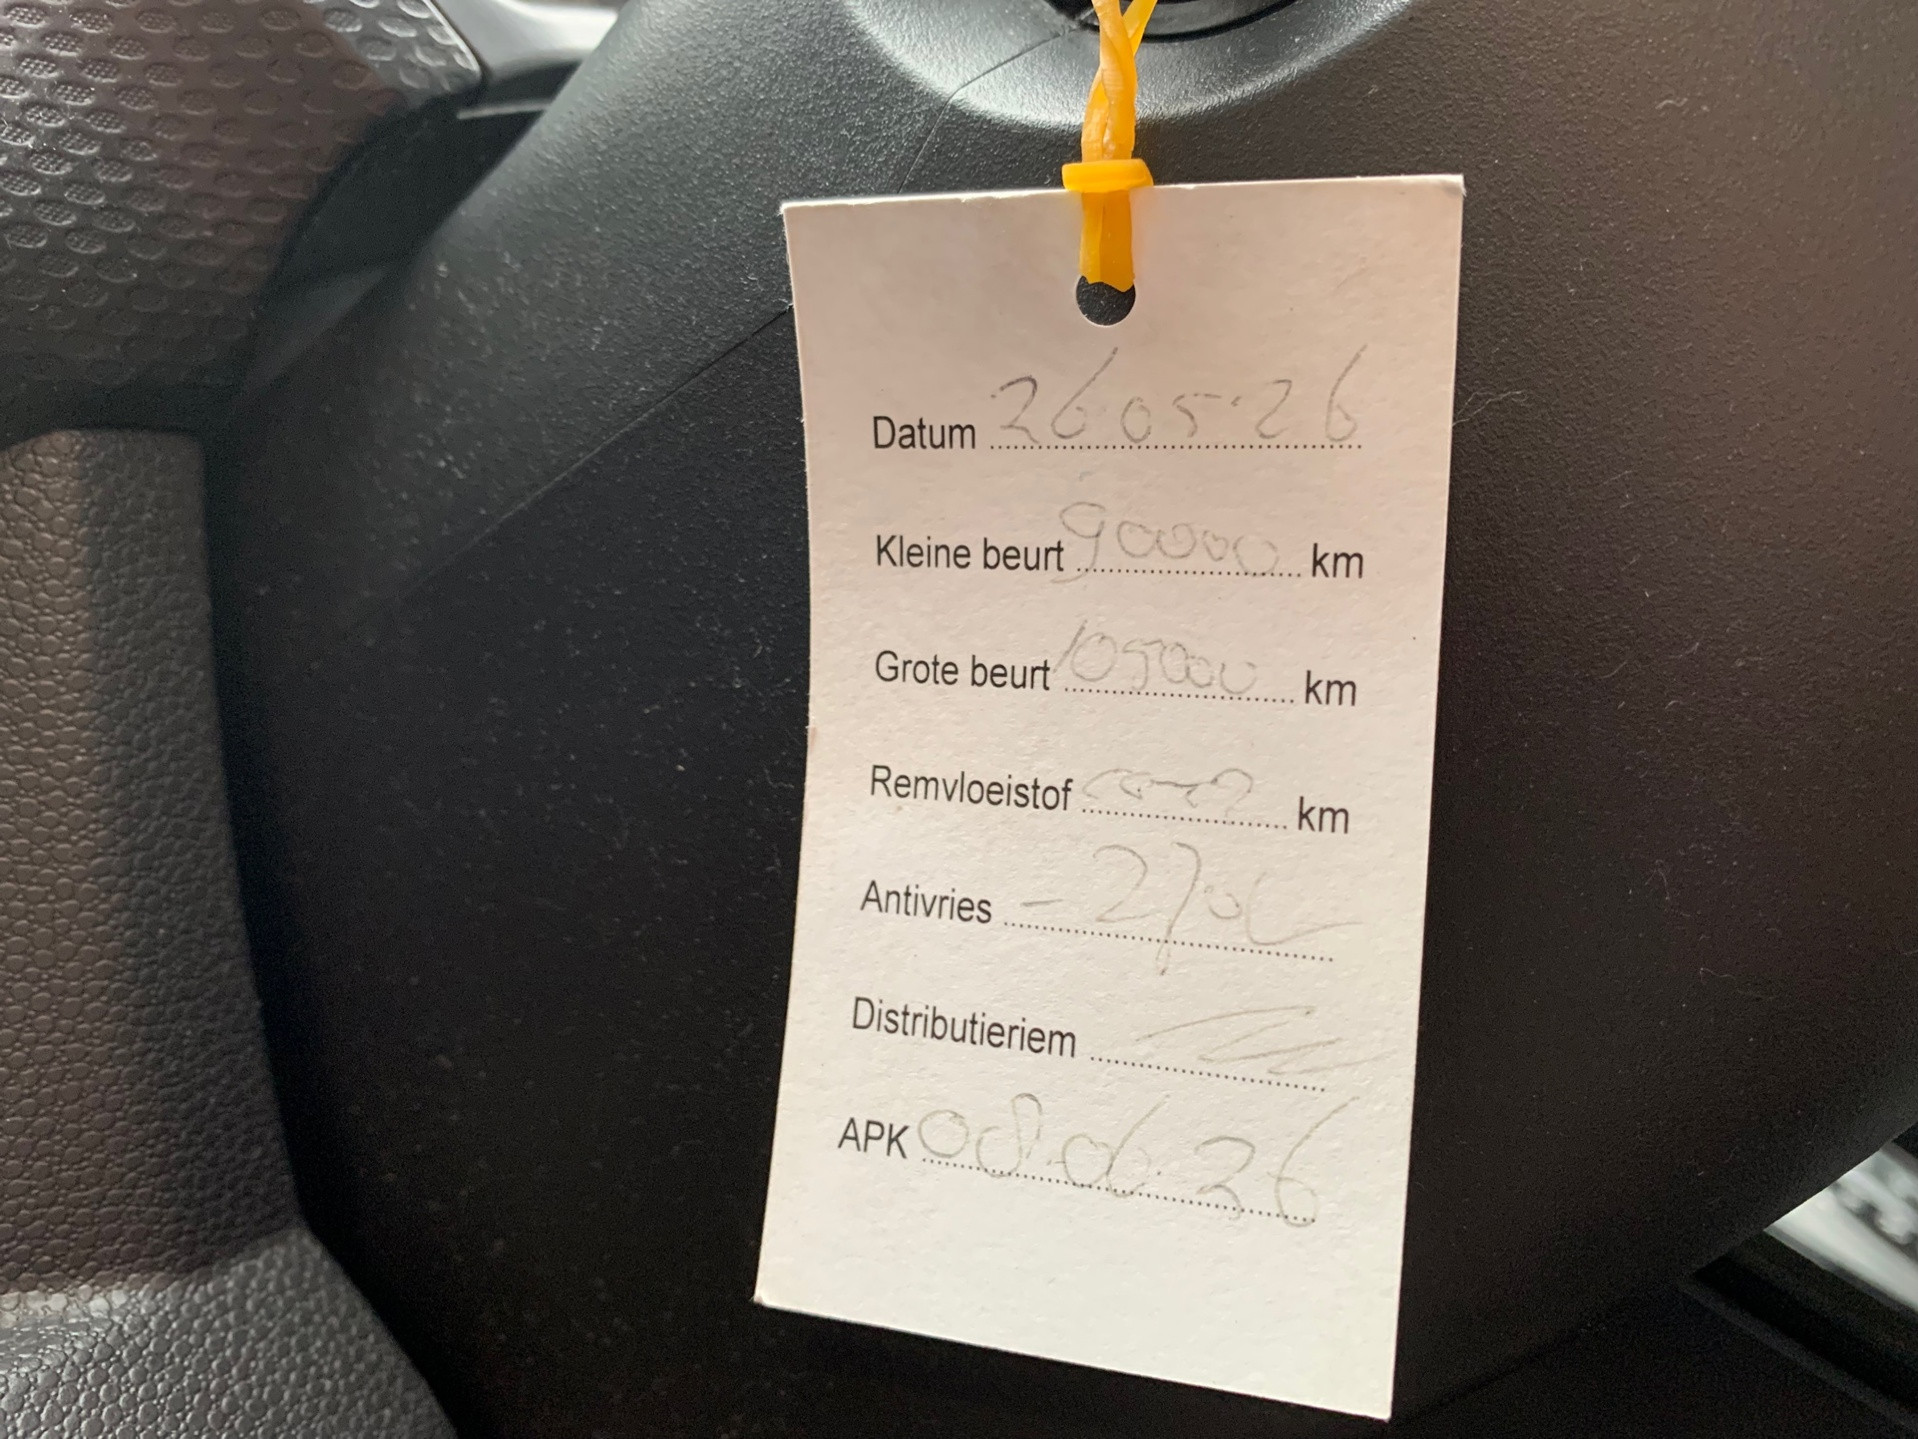 Datum 26 05·26
Kleine beurt 90000 km
Grote beurt 105000 km
Remvloeistof km
Antivries - 27°C
Distributieriem
APK 08·06·26